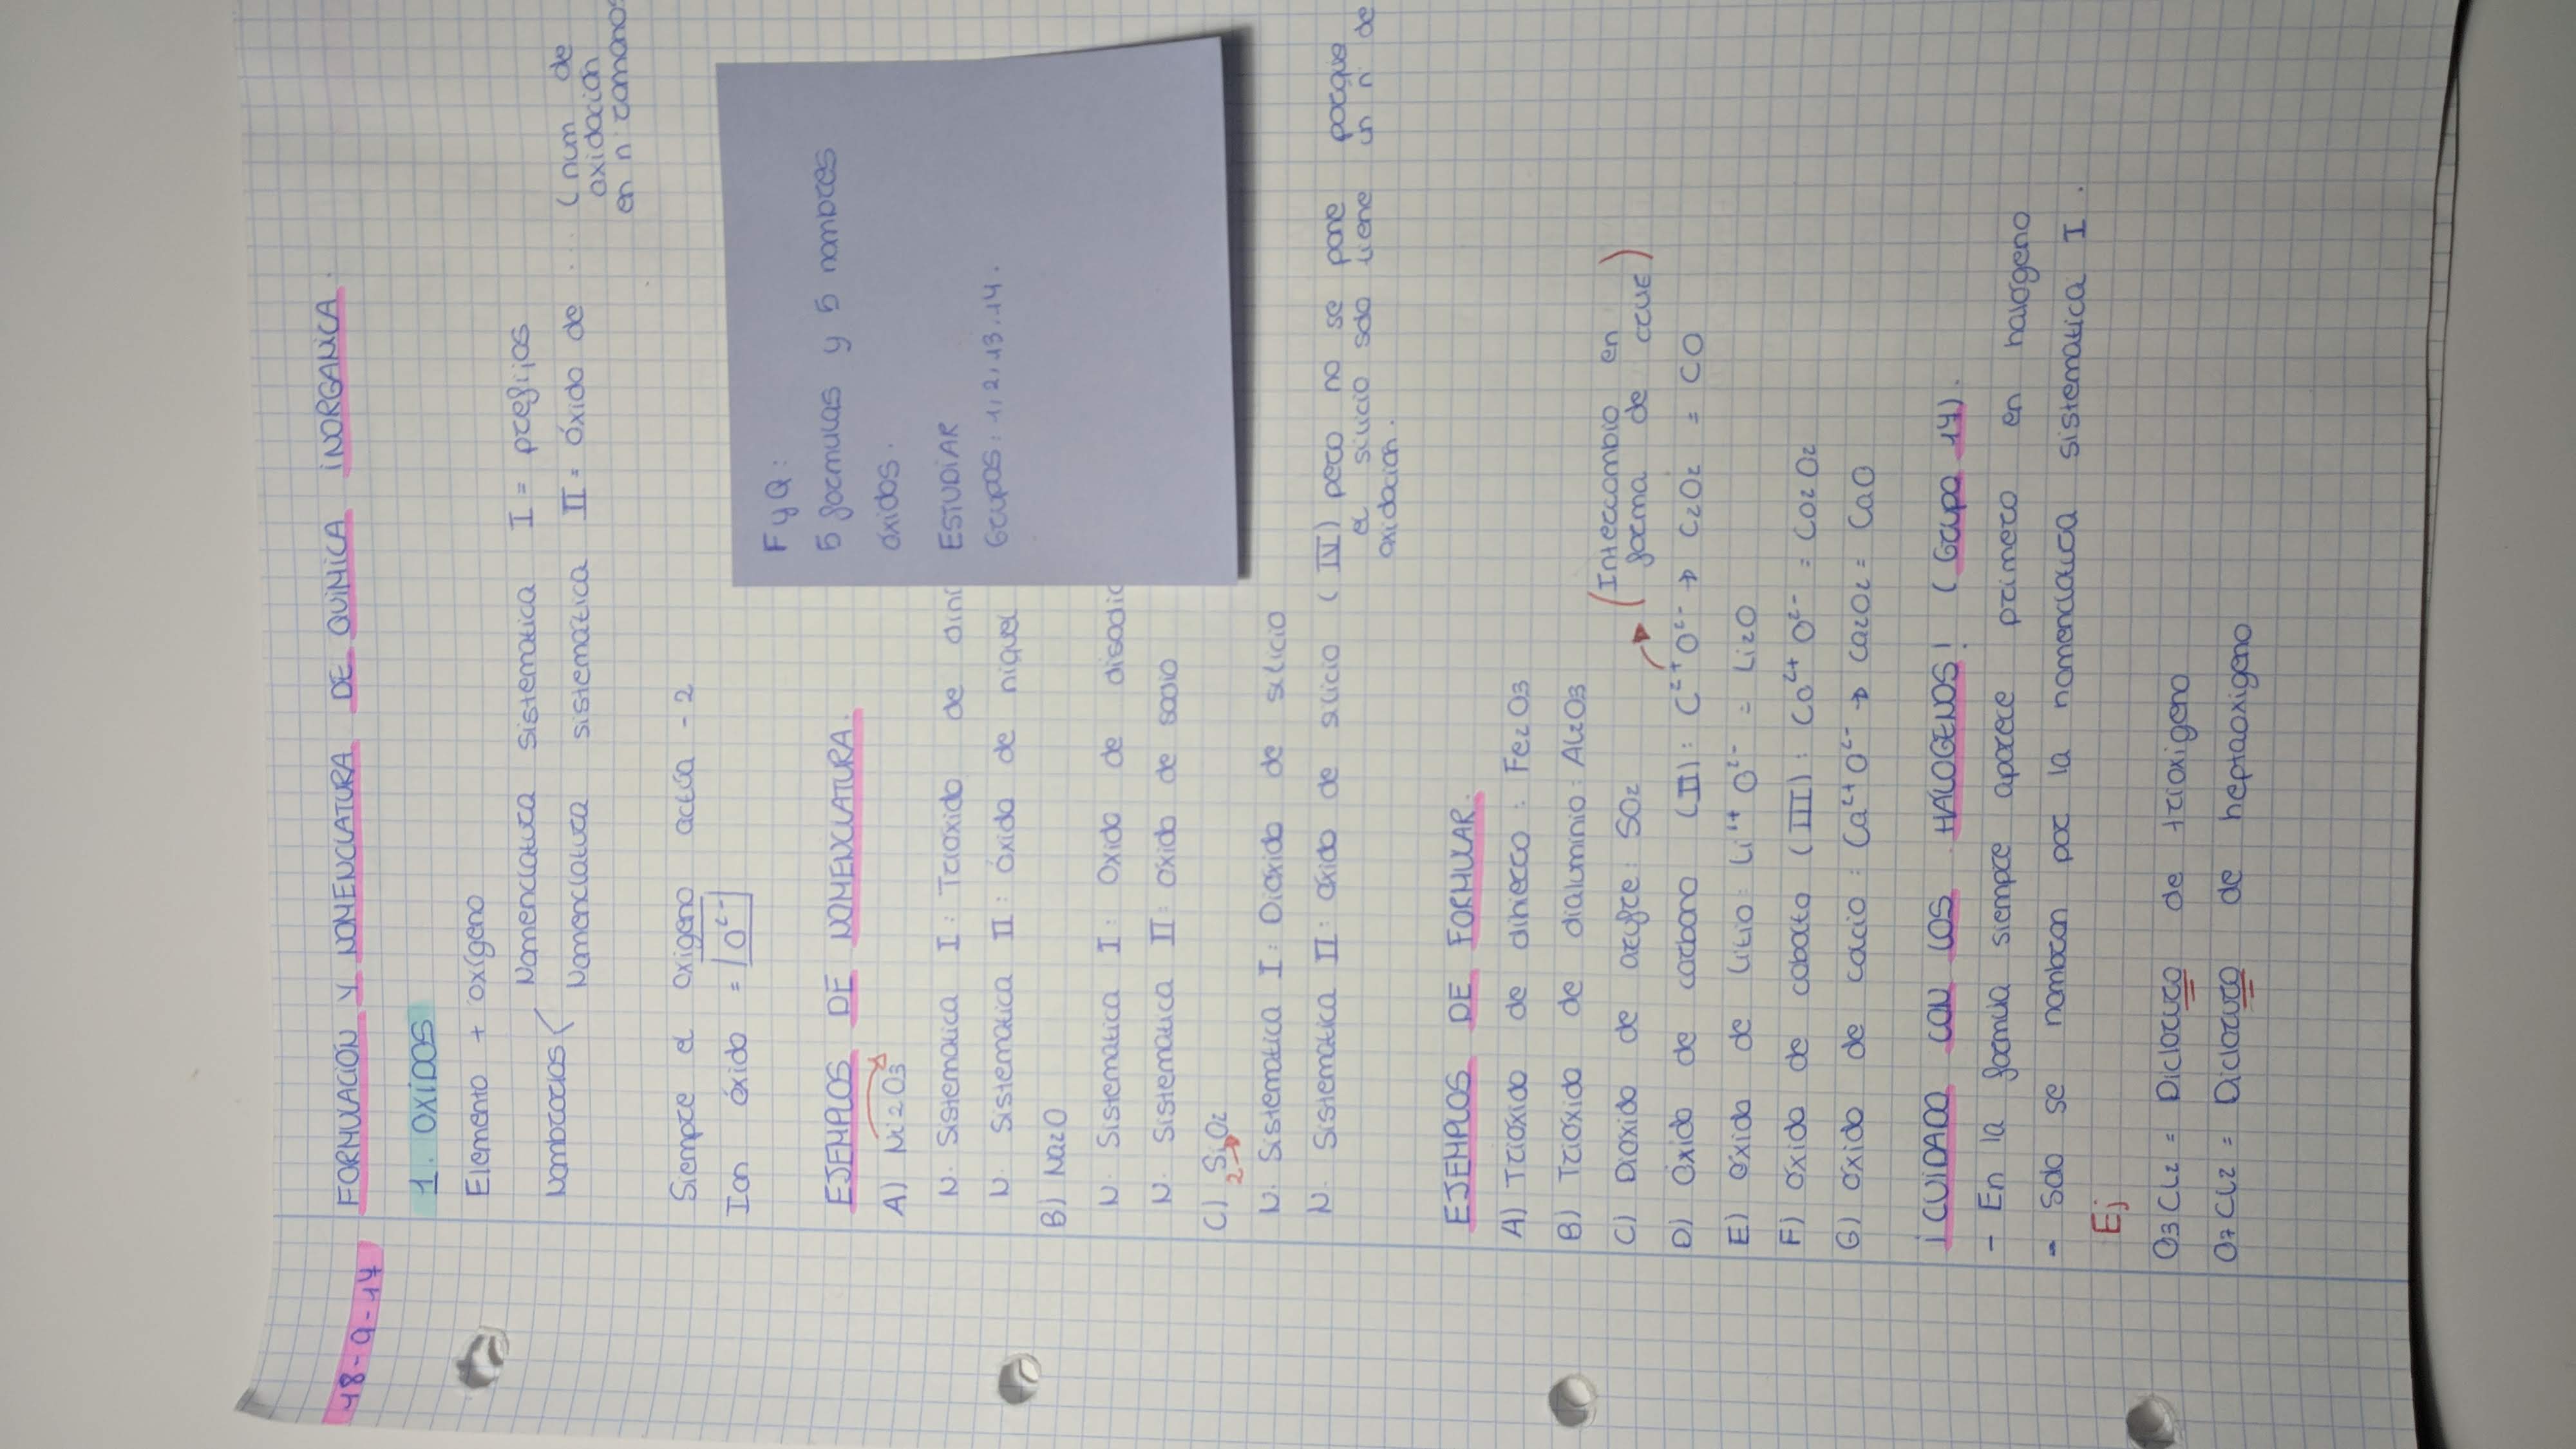 18-9-17
FORMULACION Y NOMENCLATURA DE QUIMICA INORGANICA.
1. OXIDOS
Elemento + oxígeno
Nombrarlos
Nomenclatura sistematica I = prefijos
Nomenclatura sistematica II = óxido de ... (num de
oxidacion
en nº romanos
Siempre el oxigeno actúa -2
Ion óxido = O²⁻
EJEMPLOS DE NOMENCLATURA.
A) Ni2O3
N. Sistematica I: Trioxido de dini
N. Sistematica II: óxido de niquel
B) Na2O
N. Sistematica I: Oxido de disodio
N. Sistematica II: oxido de sodio
C) SiO2
2
N. Sistematica I: Dioxido de silicio
N. Sistematica II: oxido de silicio (IV) pero no se pone porque
el silicio solo tiene un nº de
oxidacion.
FyQ:
5 formulas y 5 nombres
óxidos.
ESTUDIAR
Grupos: 1, 2, 13, 14.
EJEMPLOS DE FORMULAR.
A) Trióxido de dihierro: Fe2O3
B) Trióxido de dialuminio: Al2O3
C) Dioxido de azufre: SO2
(Intercambio en
forma de cruz)
D) óxido de carbono (II): C²⁺O²⁻ → C2O2 = CO
E) óxido de litio: Li¹⁺ O²⁻ = Li2O
F) óxido de cobalto (III): Co²⁺ O²⁻ = Co2O2
G) óxido de calcio: Ca²⁺O²⁻ → Ca2O2 = CaO
¡CUIDADO CON LOS HALOGENOS! (Grupo 17).
- En la formula siempre aparece primero en halógeno
- Solo se nombran por la nomenclatura sistematica I.
Ej
O3Cl2 = Dicloruro de trioxigeno
O7Cl2 = Dicloruro de heptaoxigeno